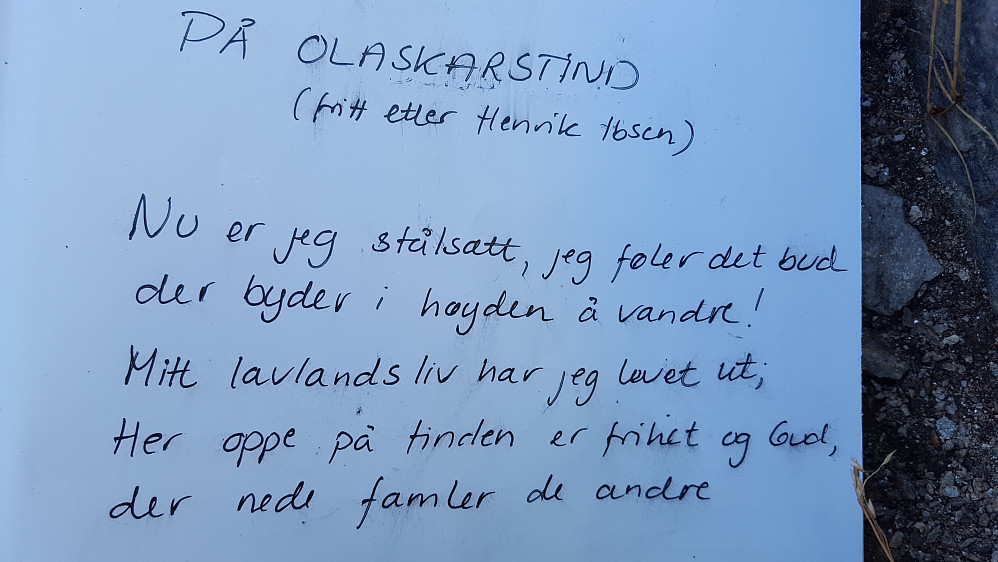 PÅ OLASKARSTIND
(fritt etter Henrik Ibsen)
Nu er jeg stålsatt, jeg føler det bud
der byder i høyden å vandre!
Mitt lavlandsliv har jeg levet ut;
Her oppe på tinden er frihet og Gud,
der nede famler de andre